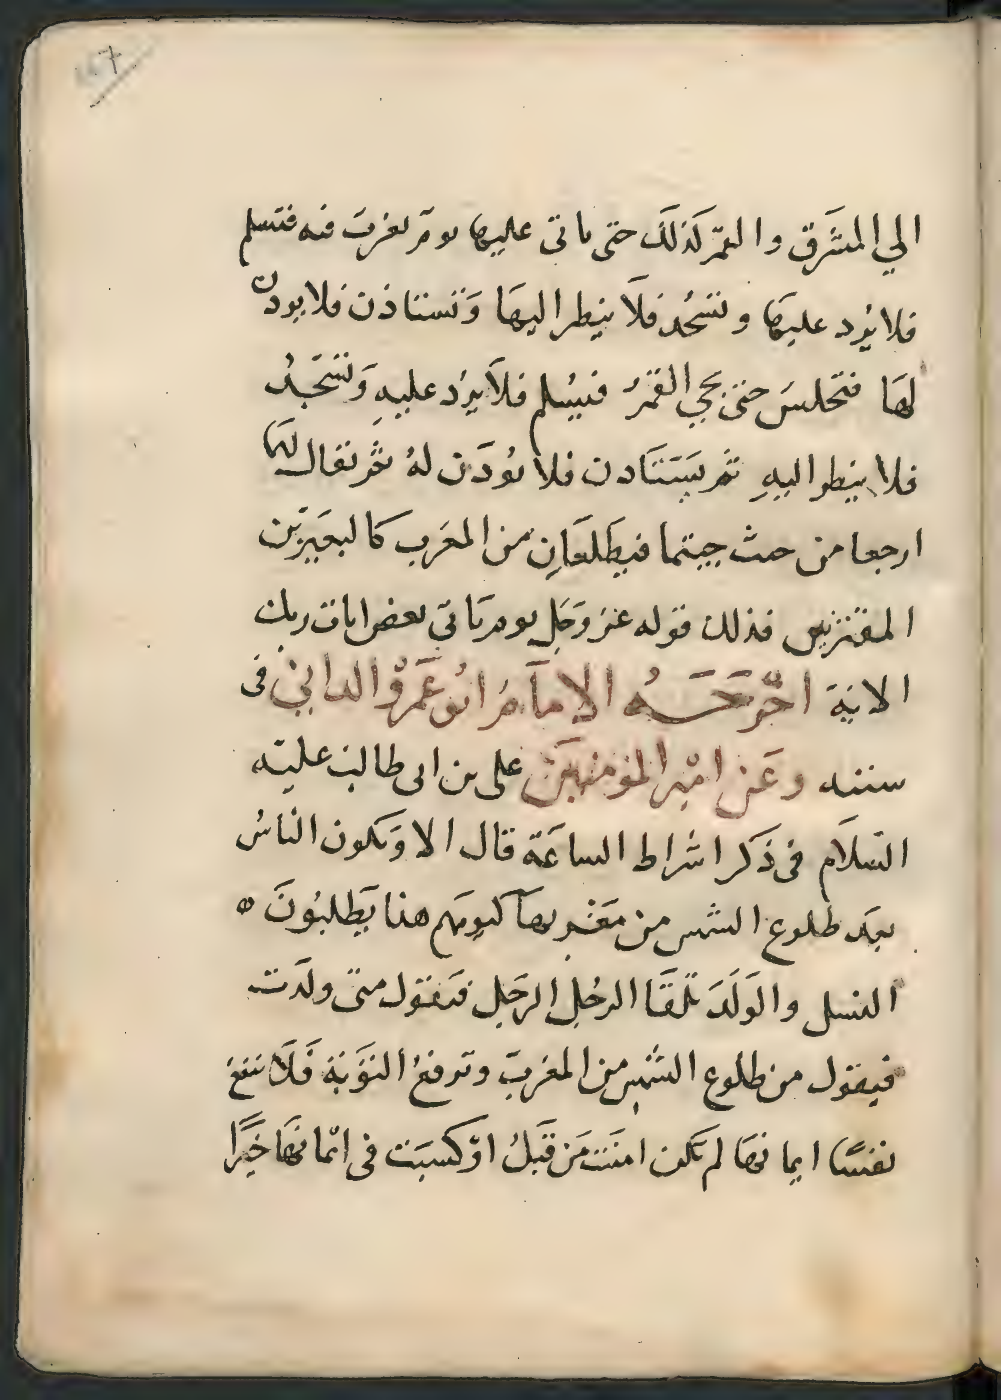 ١٤٧
الي المشَرق والقمرّ كَذلَك حتى ياتى عليها يومّ تغربَ فيه فتسلم
فلا يُرد عليهَا وتسْجُد فلاَ ينظر اليهَا وَتستاذن فلا يوذن
لهَا فتحلسَ حتىَ يجي القمَرُ فيسُلم فلاَ يرُد عليهِ وَتسَجَدُ
فلا ينظر اليهِ ثمّ يسَتَاذن فلا يُوذَن لهُ ثمّ تقال لهَما
ارجعا من حيث جيتما فيطَلعَانِ من المغَرب كالبعَيرَين
المقتَرنين فذلك قوله عزوَجَل يومَ يَاتيّ بعض ايات ربك
الايَةَ اخّرجَــهُ الامآمُ ابُو عَمَرْو الدانيْ فى
سننه وعَن امْيرالمَومنيَنْ على بن ابى طالبَ عليّه
السَلاَم فى ذَكر اشراط الساعَة قال الا وَتكون الناسُ
بعَد طلوع الشمس من مَغربهآ كيومهم هذا يَطلبُونَ ه
النسل والوَلَدَ تَلَقَا الرجُل الرجَل فَيقول متىَ ولَدت
فيقول من طلوع الشمْس من المغربَ وتَرفعُ التوَبَة فَلاَ تنفع
نفسًا ايمانهَا لم تَكن امنَت مَن قَبلُ اوّ كسَبَت فى ائمانهَا خيًَرا